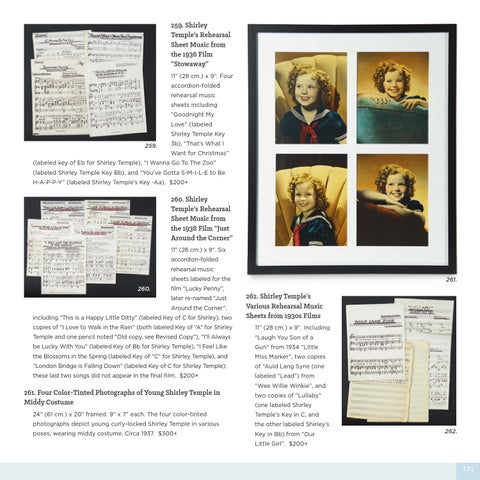 259. Shirley
Temple's Rehearsal
Sheet Music from
the 1936 Film
"Stowaway"
11" (28 cm.) x 9". Four
accordion-folded
rehearsal music
sheets including
"Goodnight My
Love" (labeled
Shirley Temple Key
3b), "That's What I
Want for Christmas"
(labeled key of Eb for Shirley Temple), "I Wanna Go To The Zoo"
(labeled Shirley Temple Key Bb), and "You've Gotta S-M-I-L-E to Be
H-A-P-P-Y" (labeled Shirley Temple's Key -Aa). $200+
259.
260. Shirley
Temple's Rehearsal
Sheet Music from
the 1938 Film "Just
Around the Corner"
11" (28 cm.) x 9". Six
accordion-folded
rehearsal music
sheets labeled for the
film "Lucky Penny",
later re-named "Just
Around the Corner",
including "This is a Happy Little Ditty" (labeled Key of C for Shirley), two
copies of "I Love to Walk in the Rain" (both labeled Key of "A" for Shirley
Temple and one pencil noted "Old copy, see Revised Copy"), "I'll Always
be Lucky With You" (labeled Key of Bb for Shirley Temple), "I Feel Like
the Blossoms in the Spring (labeled Key of "C" for Shirley Temple), and
"London Bridge is Falling Down" (labeled Key of C for Shirley Temple);
these last two songs did not appear in the final film. $200+
260.
261. Four Color-Tinted Photographs of Young Shirley Temple in
Middy Costume
24" (61 cm.) x 20" framed. 9" x 7" each. The four color-tinted
photographs depict young curly-locked Shirley Temple in various
poses, wearing middy costume. Circa 1937. $300+
261.
262. Shirley Temple's
Various Rehearsal Music
Sheets from 1930s Films
11" (28 cm.) x 9". including
"Laugh You Son of a
Gun" from 1934 "Little
Miss Marker", two copies
of "Auld Lang Syne (one
labeled "Lead") from
"Wee Willie Winkie", and
two copies of "Lullaby"
(one labeled Shirley
Temple's Key in C, and
the other labeled Shirley's
Key in Bb) from "Our
Little Girl". $200+
AULD LANG SYNE
262.
123